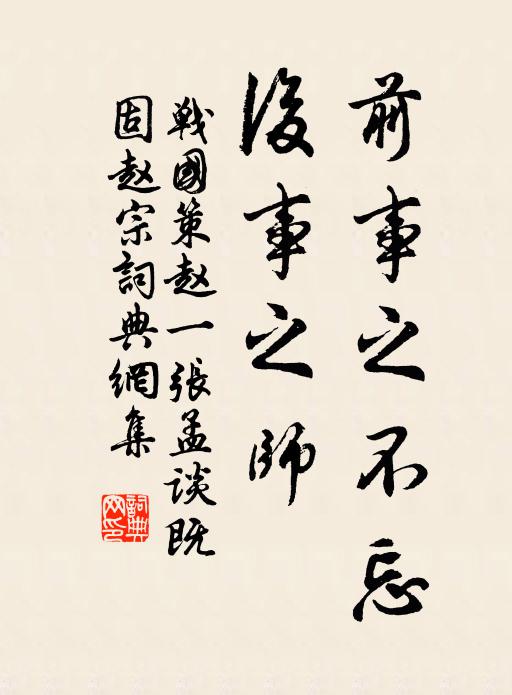 前事之不忘
後事之師
戰國策赵一張孟談既
固赵宗詞典網集
詞典
网印